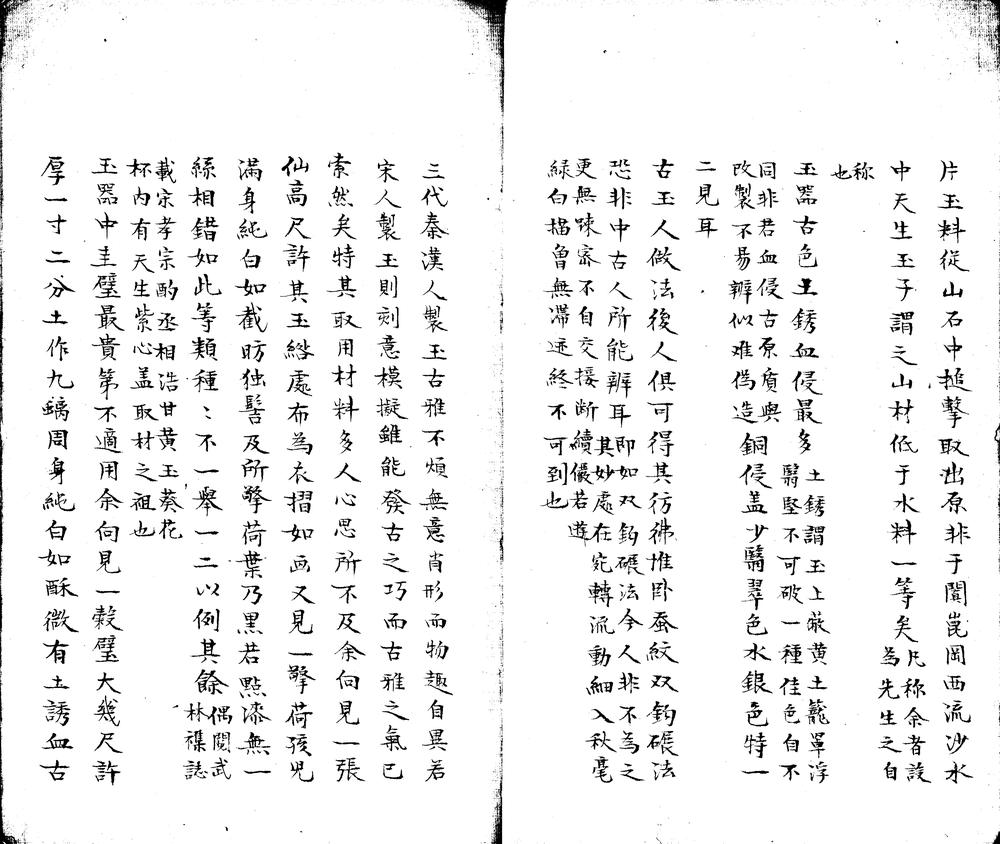 片玉料從山石中搥擊取出原非于闐崑岡西流沙水
中天生玉子謂之山材低于水料一等矣凡称余者設
為先生之自
称
也
玉器古色土銹血侵最多土銹謂玉上蔽黄土籠罩浮
翳堅不可破一種佳色自不
同非若血侵古原質與
改製不易辨似难偽造銅侵盖少翳翠色水銀色特一
二見耳
古玉人做法後人俱可得其彷彿惟卧蚕紋双鈎碾法
恐非中古人所能辨耳即如双鈎碾法今人非不為之
其妙處在宛轉流動細入秋毫
更無踈密不自交接断續儼若遊
緑白描魯無滯迹終不可到也
三代秦漢人製玉古雅不煩無意肖形而物趣自異若
宋人製玉則刻意模擬雖能發古之巧而古雅之氣已
索然矣特其取用材料多人心思所不及余向見一張
仙高尺許其玉綹處布為衣摺如画又見一擎荷孩児
滿身純白如截昉独髻及所擎荷葉乃黒若點漆無一
絲相錯如此等類種〻不一舉一二以例其餘偶閱武
林襍誌
載宋孝宗酌丞相浩甘黄玉葵花
杯内有天生紫心盖取材之祖也
玉器中圭璧最貴第不適用余向見一榖璧大幾尺許
厚一寸二分土作九鏑周身純白如酥微有土誘血古